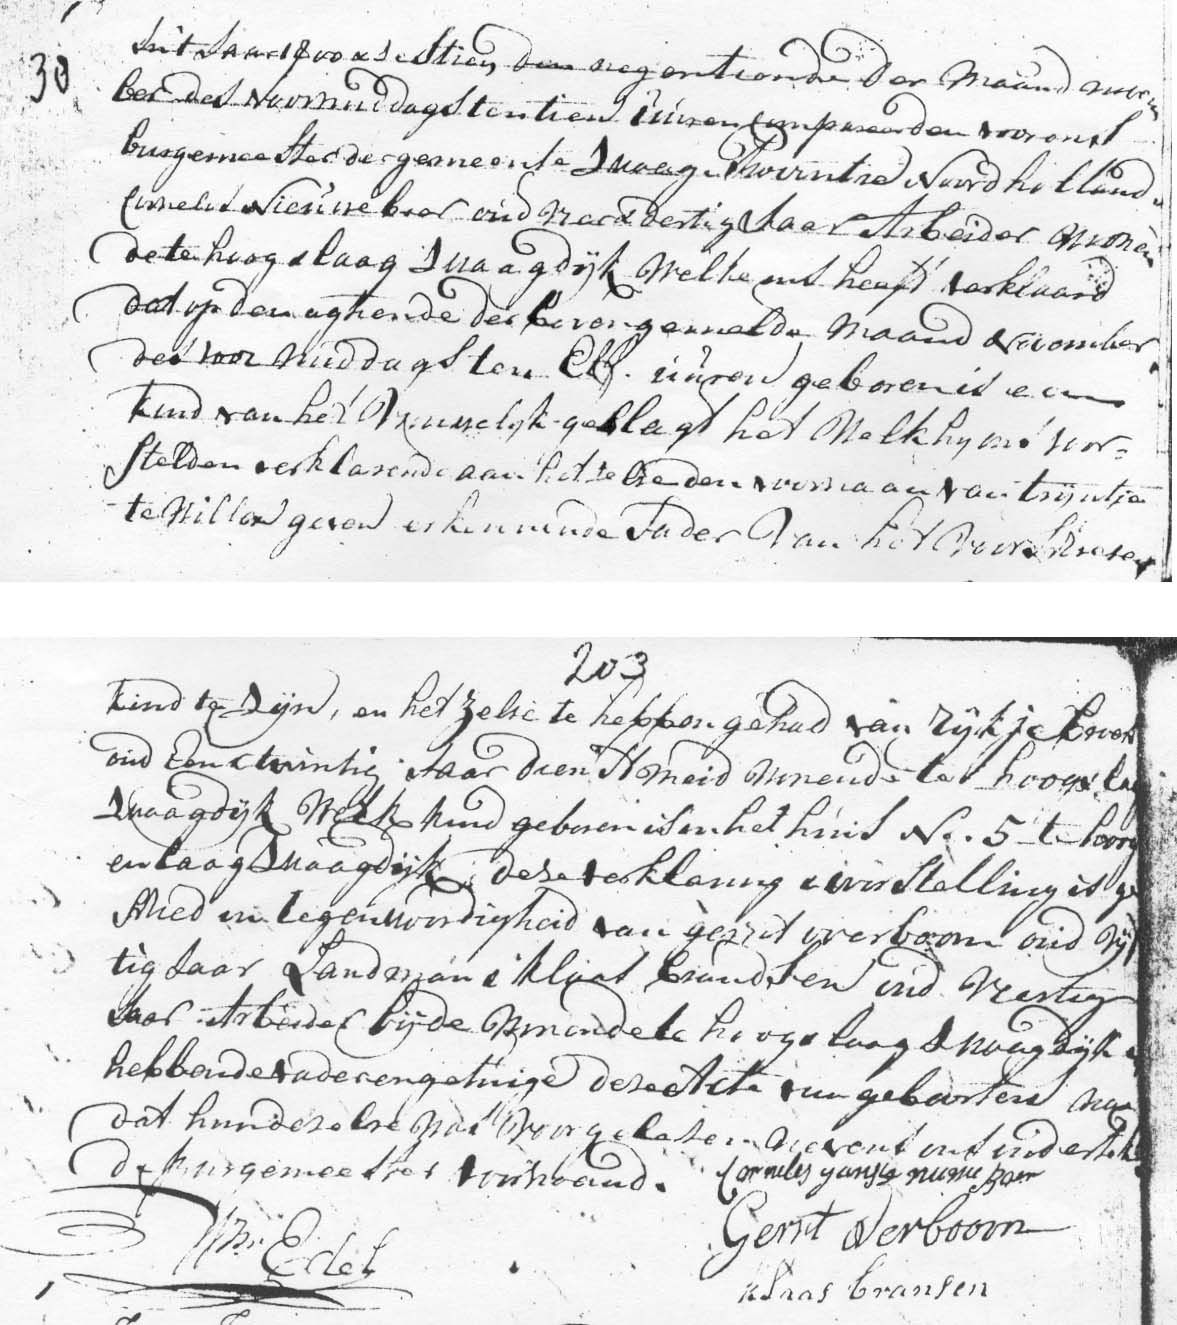 30
in't Jaar 1800 & sestien den negentiende der Maand novem
ber des voormiddags ten tien uuren Compareerden voor ons
burgemeester der gemeente Zwaag Provintie Noordholland
Cornelis Nieuweboer oud vier & dertig Jaar Arbeider wonen
de te hoog & laag Zwaagdijk Welke ons heeft verklaard
dat op den agtiende der bovengemelde Maand November
des voor middags ten Elf uuren geboren is een
kind van het Vrouwelijk geslagt het Welk hij ons vor=
stelden verklarende aan het zelve den voornaam van trijntje
te Willen geven erkennende Vader Van het Voorschreven
203
kind te Zijn, en het zelve te hebben gehad van Rijkje Broer
oud Een & twintig Jaar dienstmeid wonende te hoog & laag
Zwaagdijk Welk kind geboren is in het huis No. 5 te hoog
en laag Zwaagdijk deze verklaring & vorstelling is ge
schied in tegenwoordigheid van gerrit verboom oud vijf
tig Jaar Landman & klaas brandsen oud Veertig
Jaar Arbeider bijde Wonende te hoog & laag Zwaagdijk
hebbende vader en getuige deze Acte van geboorten na
dat hun dezelve was Voorgelezen nevens ons onderteke
de burgemeester voornoemd.
Cornelis Janse nieuweboer
Gerrit Verboom
Edel
klaas bransen